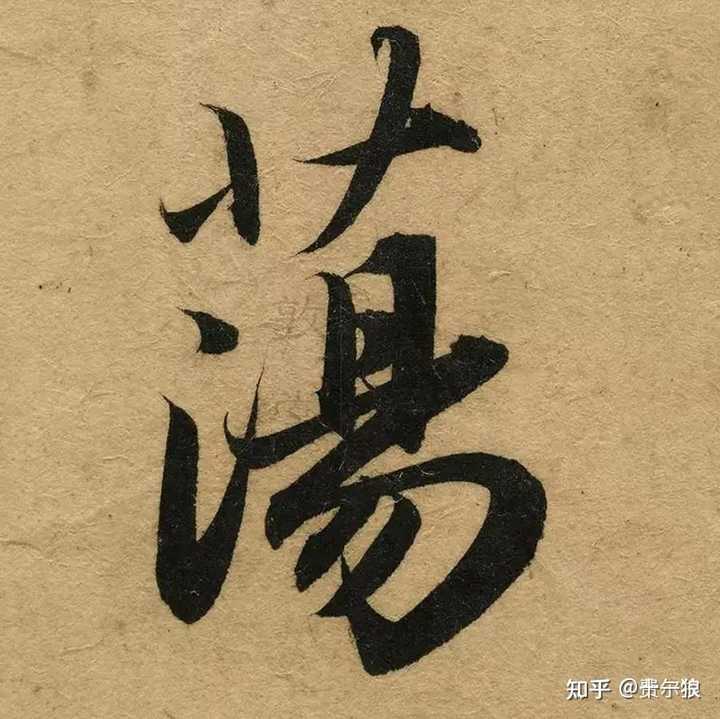 蕩
知乎 @费尔狼